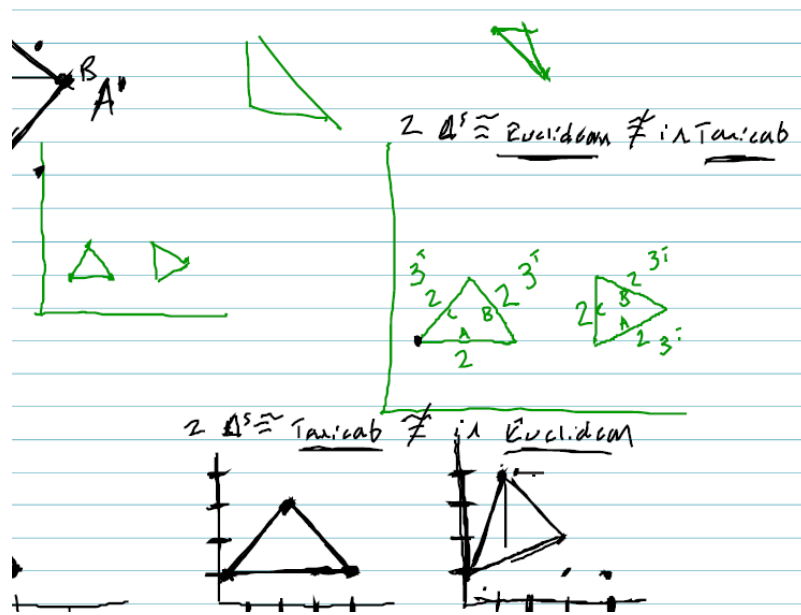 B
A'
2 Δˢ ≅ Euclidean ≇ in Taxicab
3ᵀ 3ᵀ 3ᵀ
2 C B 2 2 C B 2
A A
2 2 3ᵀ
2 Δˢ ≅ Taxicab ≇ in Euclidean